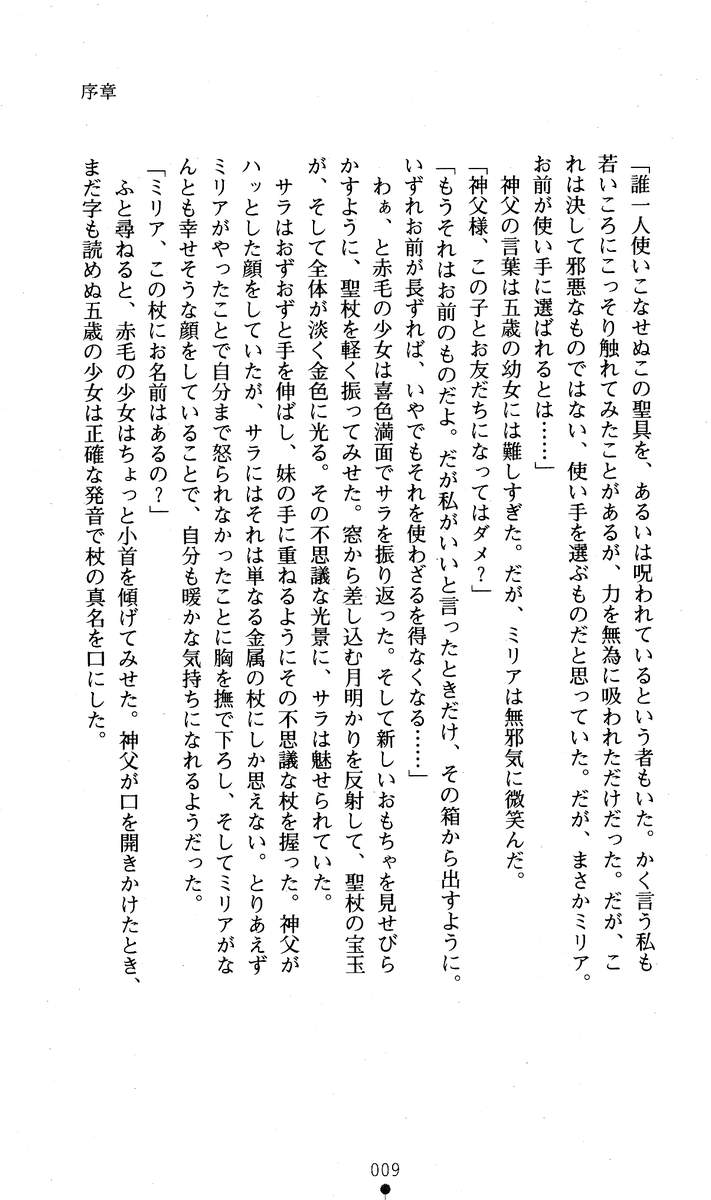 序章
「誰一人使いこなせぬこの聖具を、あるいは呪われているという者もいた。かく言う私も
若いころにこっそり触れてみたことがあるが、力を無為に吸われただけだった。だが、こ
れは決して邪悪なものではない、使い手を選ぶものだと思っていた。だが、まさかミリア。
お前が使い手に選ばれるとは……」
　神父の言葉は五歳の幼女には難しすぎた。だが、ミリアは無邪気に微笑んだ。
「神父様、この子とお友だちになってはダメ？」
「もうそれはお前のものだよ。だが私がいいと言ったときだけ、その箱から出すように。
いずれお前が長ずれば、いやでもそれを使わざるを得なくなる……」
　わぁ、と赤毛の少女は喜色満面でサラを振り返った。そして新しいおもちゃを見せびら
かすように、聖杖を軽く振ってみせた。窓から差し込む月明かりを反射して、聖杖の宝玉
が、そして全体が淡く金色に光る。その不思議な光景に、サラは魅せられていた。
　サラはおずおずと手を伸ばし、妹の手に重ねるようにその不思議な杖を握った。神父が
ハッとした顔をしていたが、サラにはそれは単なる金属の杖にしか思えない。とりあえず
ミリアがやったことで自分まで怒られなかったことに胸を撫で下ろし、そしてミリアがな
んとも幸せそうな顔をしていることで、自分も暖かな気持ちになれるようだった。
「ミリア、この杖にお名前はあるの？」
　ふと尋ねると、赤毛の少女はちょっと小首を傾げてみせた。神父が口を開きかけたとき、
まだ字も読めぬ五歳の少女は正確な発音で杖の真名を口にした。
009